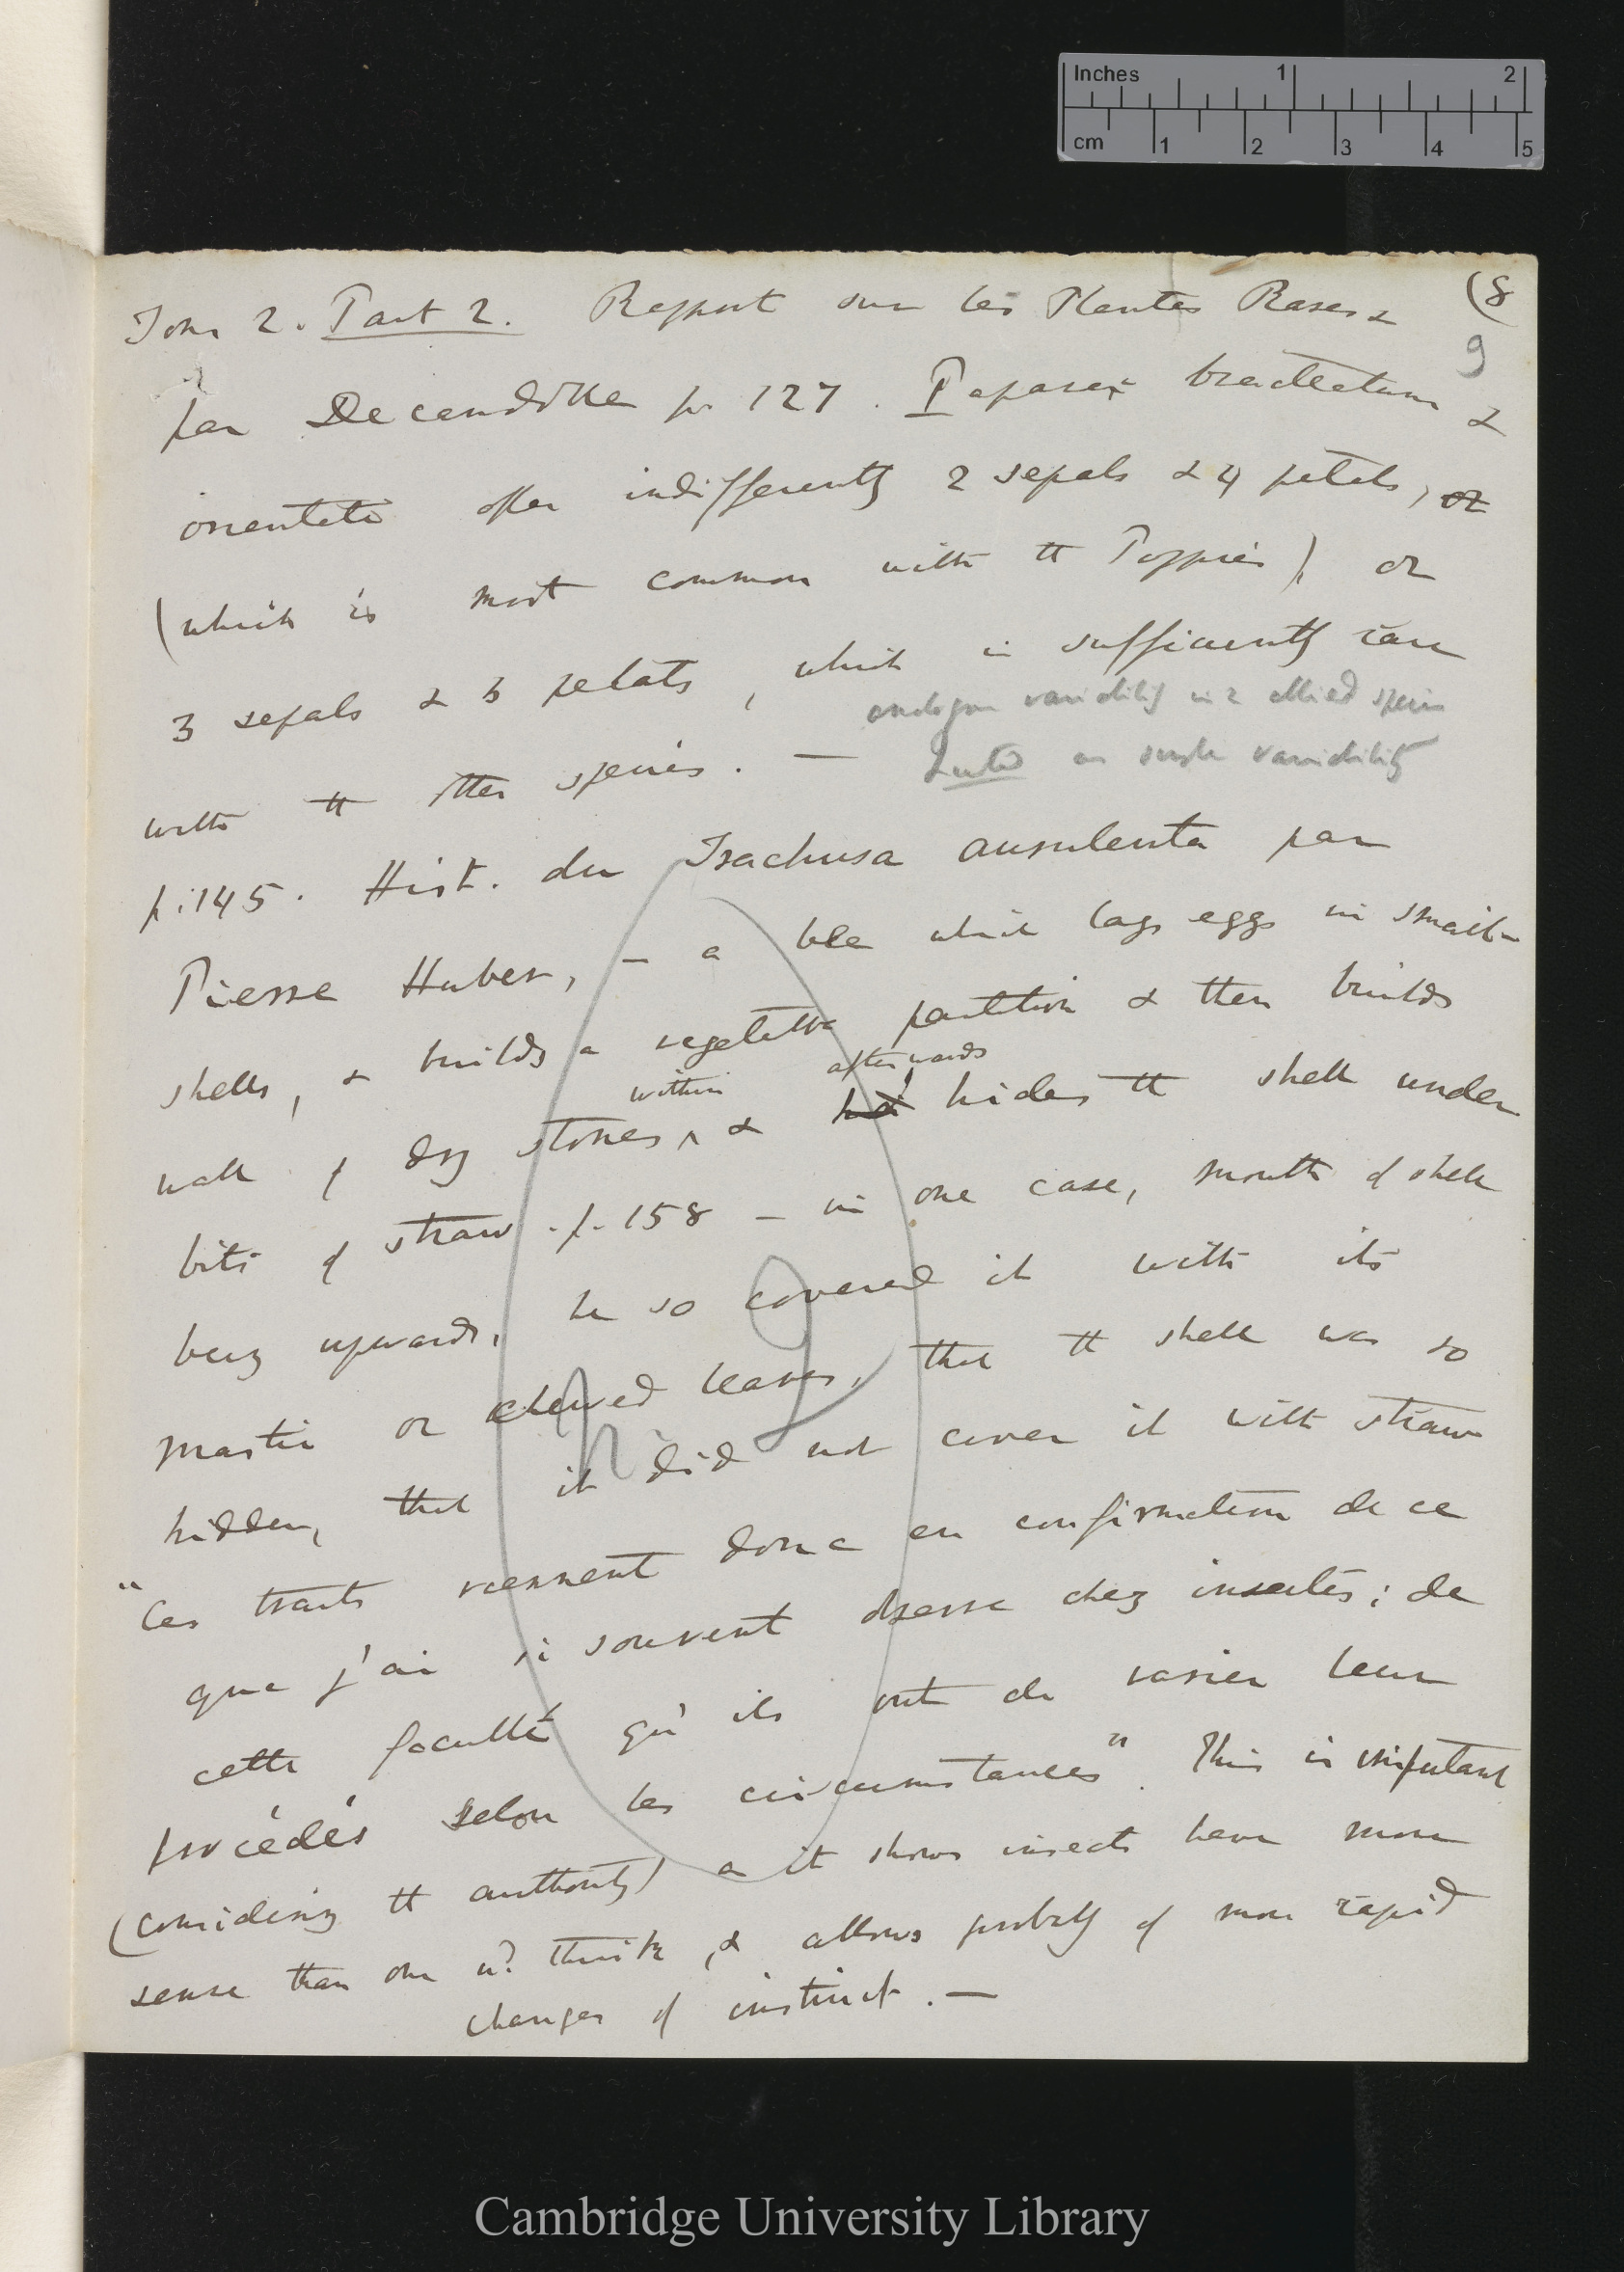 Inches 1 2
cm 1 2 3 4 5
(8
9
Tom 2. Part 2. Rapport sur les Plantes Rares &
par Decandolle p. 127. Papaver bracteatum &
orientale offer indifferently 2 sepals & 4 petals, or
(which is most common with the Poppies), or
3 sepals & 6 petals, which is sufficiently rare
analogous variability in 2 allied species
as single variability
with the other species. —
p. 145. Hist. du Trachusa aurulenta par
Pierre Huber, — a bee which lays eggs in snail-
shells, & builds a vegetable partition & then builds
within afterwards
wall of dry stones ^ & hid hides the shell under
bits of straw. p. 158 — in one case, mouth of shell
being upwards, he so covered it with its
mastic or chewed leaves, that the shell was so
hidden, that it did not cover it with straw
"Ces traits viennent donc en confirmation de ce
que j'ai si souvent observé chez insectes; de
cette faculté qu'ils ont de varier leur
procédés selon les circumstances". This is important
(considering the authority) as it shows insects have more
sense than one wd. think, & allows probably of more rapid
changes of instinct. —
Cambridge University Library